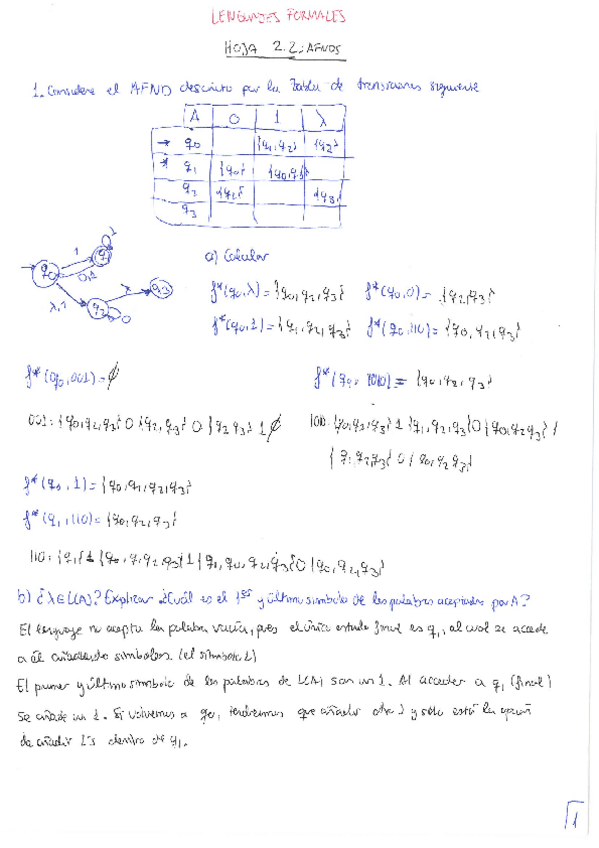 LENGUAJES FORMALES
HOJA 2.2: AFNDS
1. Considere el AFND descrito por la tabla de transiciones siguiente
A 0 1 λ
→ q0 {q1,q2} {q2}
* q1 {q0} {q0,q1}
q2 {q2} {q3}
q3
a) Calcular
q0 1 0,1 q1 1
λ,1 q2 0 λ q3
f*(q0,λ)={q0,q2,q3} f*(q0,0)={q2,q3}
f*(q0,1)={q1,q2,q3} f*(q0,110)={q0,q2,q3}
f*(q0,001)=∅ f*(q0, 1010)={q0,q2,q3}
001: {q0,q2,q3} 0 {q2,q3} 0 {q2 q3} 1 ∅ {q0,q2,q3} 1 {q1,q2,q3} 0 {q0,q2,q3} 1
{q1,q2,q3} 0 {q0,q2,q3}
f*(q1,1)={q0,q1,q2,q3}
f*(q1,110)={q0,q2,q3}
110: {q1} 1 {q0,q1,q2,q3} 1 {q1,q0,q2,q3} 0 {q0,q2,q3}
b) ¿λ∈L(A)? Explicar ¿Cuál es el 1er y último símbolo de las palabras aceptadas por A?
El lenguaje no acepta la palabra vacía, pues el único estado final es q1, al cual se accede
a él añadiendo símbolos (el símbolo 1)
El primer y último símbolo de las palabras de L(A) son un 1. Al acceder a q1 (final)
se añade un 1. Si volvemos a q0, tendremos que añadir otro 1 y sólo está la opción
de añadir 1's dentro de q1.
1